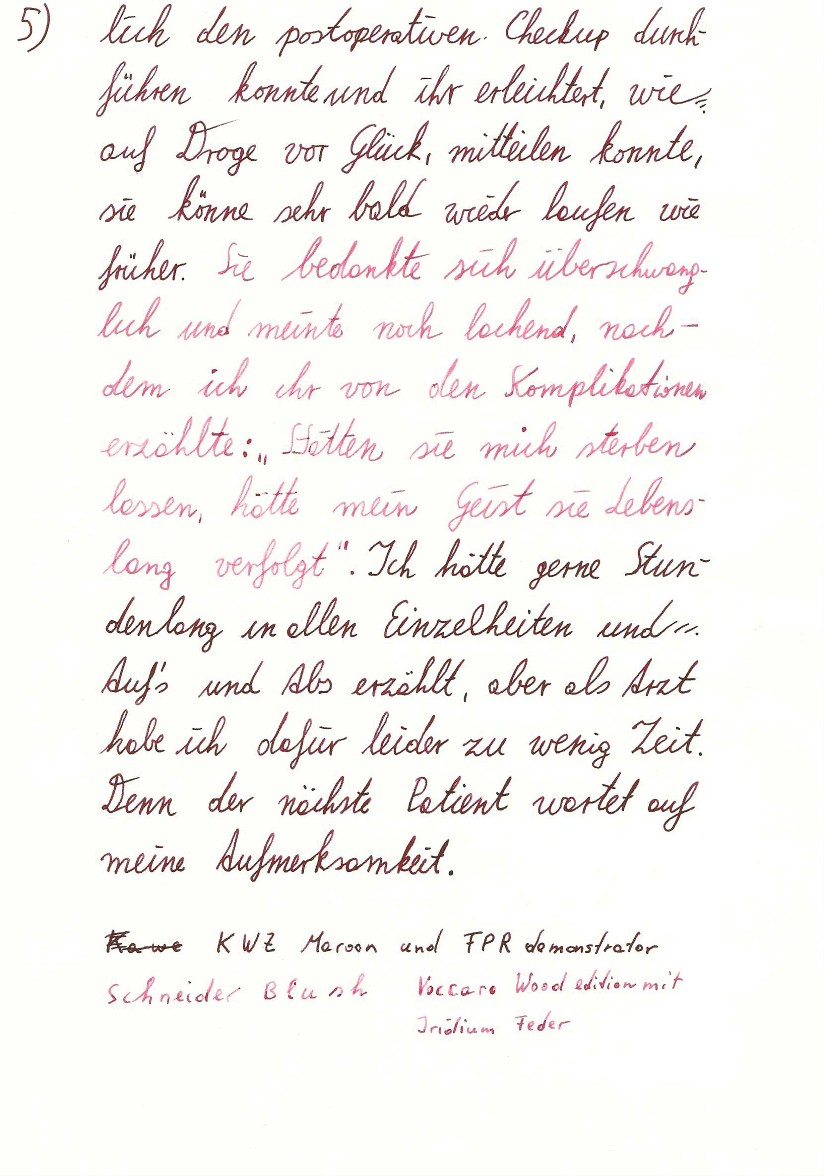 5) lich den postoperativen Checkup durch-
führen konnte und ihr erleichtert, wie
auf Droge vor Glück, mitteilen konnte,
sie könne sehr bald wieder laufen wie
früher. Sie bedankte sich überschwang-
lich und meinte noch lachend, nach-
dem ich ihr von den Komplikationen
erzählte: „Hätten sie mich sterben
lassen, hätte mein Geist sie Lebens-
lang verfolgt“. Ich hätte gerne Stun-
denlang in allen Einzelheiten und
Auf's und Abs erzählt, aber als Arzt
habe ich dafür leider zu wenig Zeit.
Denn der nächste Patient wartet auf
meine Aufmerksamkeit.
Kawe KWZ Maroon und FPR demonstrator
Schneider Blush Vaccaro Wood edition mit
Iridium Feder